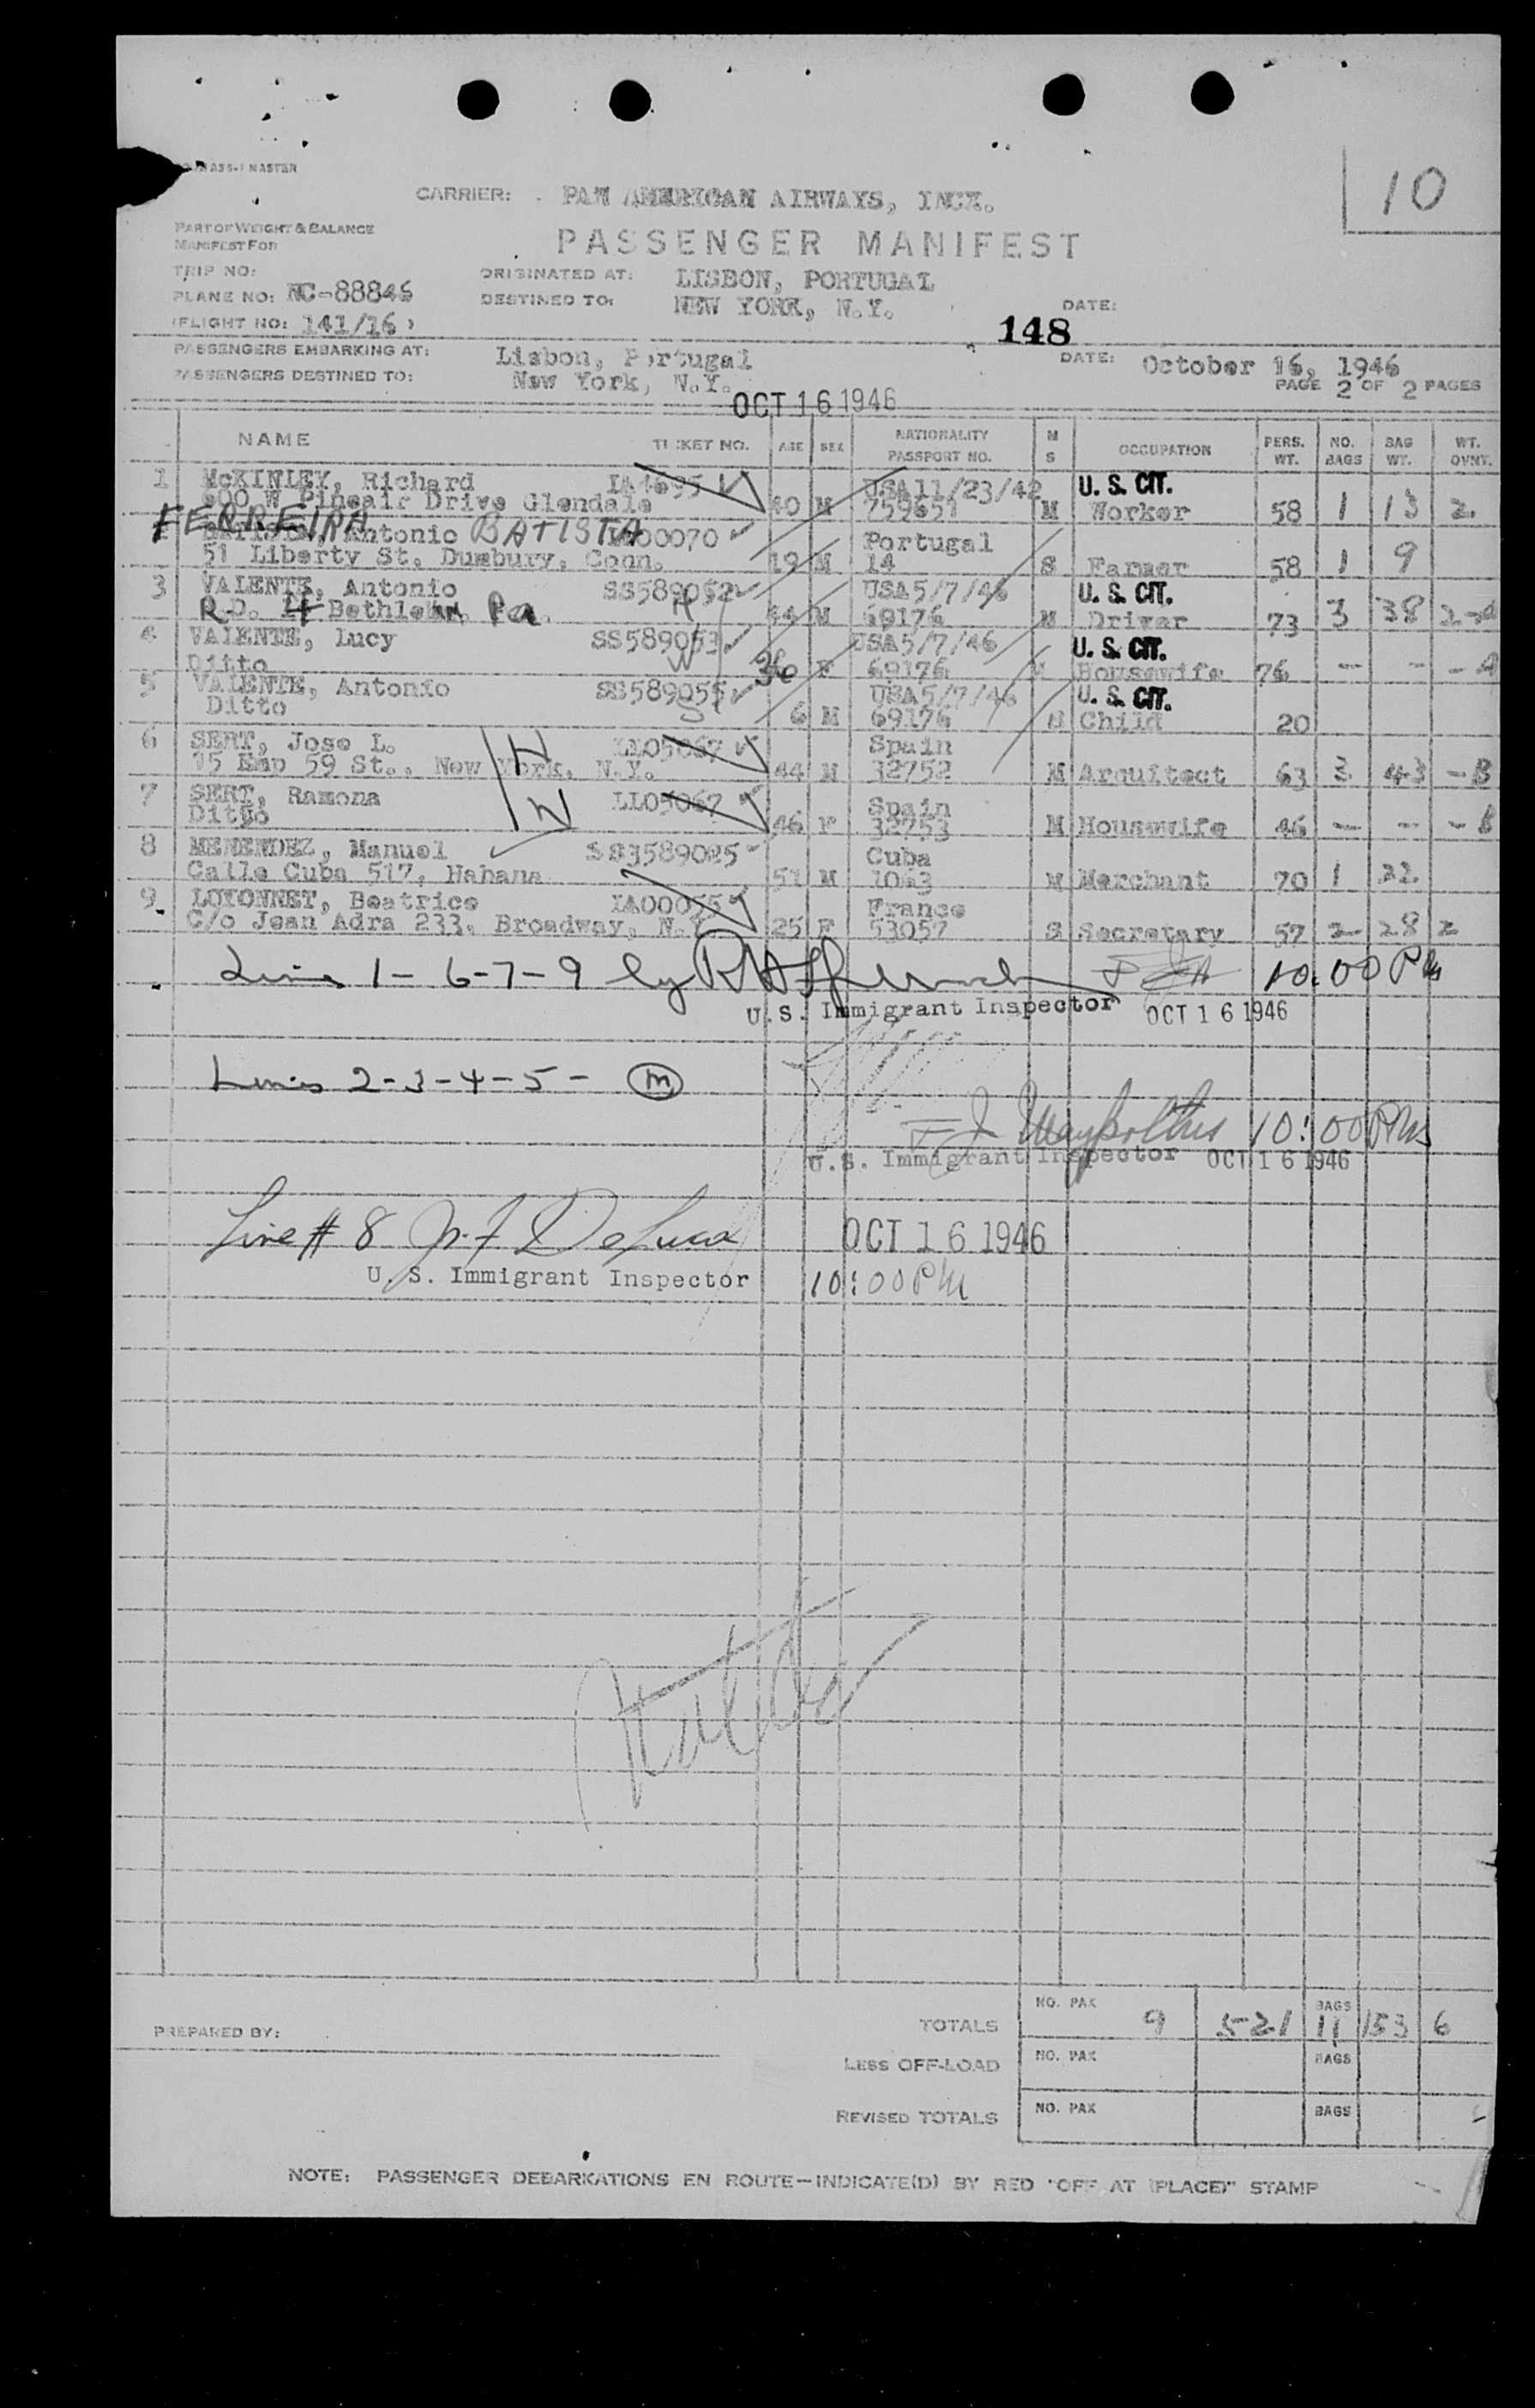 MASTER
10
CARRIER: PAN AMERICAN AIRWAYS, INCX.
PART OF WEIGHT & BALANCE
MANIFEST FOR
PASSENGER MANIFEST
TRIP NO:
ORIGINATED AT: LISBON, PORTUGAL
PLANE NO: NC-88846
DESTINED TO: NEW YORK, N.Y.
DATE:
(FLIGHT NO: 141/16)
148
PASSENGERS EMBARKING AT: Lisbon, Portugal
DATE: October 16, 1946
PASSENGERS DESTINED TO: New York, N.Y.
PAGE 2 OF 2 PAGES
OCT 16 1946
NAME TICKET NO. AGE SEX NATIONALITY PASSPORT NO. M S OCCUPATION PERS. WT. NO. BAGS BAG WT. WT. OVNT.
1 McKINLEY, Richard USA 11/23/42 U. S. CIT.
Drive Glendale 40 M M Worker 58 1 13 2
FERREIRA
Antonio BATISTA 00070 Portugal
51 Liberty St, Conn. 19 M 14 S Farmer 58 1 9
3 VALENTE, Antonio SS589052 USA 5/7/46 U. S. CIT.
R.D. 4 Bethlehem, Pa. 44 M 69176 M Driver 73 3 38
4 VALENTE, Lucy SS589053 USA 5/7/46 U. S. CIT.
Ditto F 69176 M Housewife 76 - - -
5 VALENTE, Antonio SS589055 USA 5/7/46 U. S. CIT.
Ditto 6 M 69176 S Child 20
6 SERT, Jose L. LL05067 Spain
59 St., New York, N.Y. 44 M 32752 M Arquitect 63 3 43 - B
7 SERT, Ramona LL05067 Spain
Ditto 46 F 32753 M Housewife 46 - - - B
8 MENENDEZ, Manuel SS3589025 Cuba
Calle Cuba 517, Habana 51 M 1043 M Merchant 70 1 22
9 LOYONNET, Beatrice IA00055 France
C/o Jean Adra 233, Broadway, N.Y. 25 F 53057 S Secretary 57 2 28 2
Lines 1-6-7-9 by 10:00 PM
U.S. Immigrant Inspector OCT 16 1946
Lines 2-3-4-5- m
10:00 PM
U.S. Immigrant Inspector OCT 16 1946
Line # 8 DeLuca OCT 16 1946
U.S. Immigrant Inspector 10:00 PM
PREPARED BY:
TOTALS NO. PAX 9 521 BAGS 11 153 6
LESS OFF-LOAD NO. PAX BAGS
REVISED TOTALS NO. PAX BAGS
NOTE: PASSENGER DEBARKATIONS EN ROUTE—INDICATE(D) BY RED "OFF AT (PLACE)" STAMP